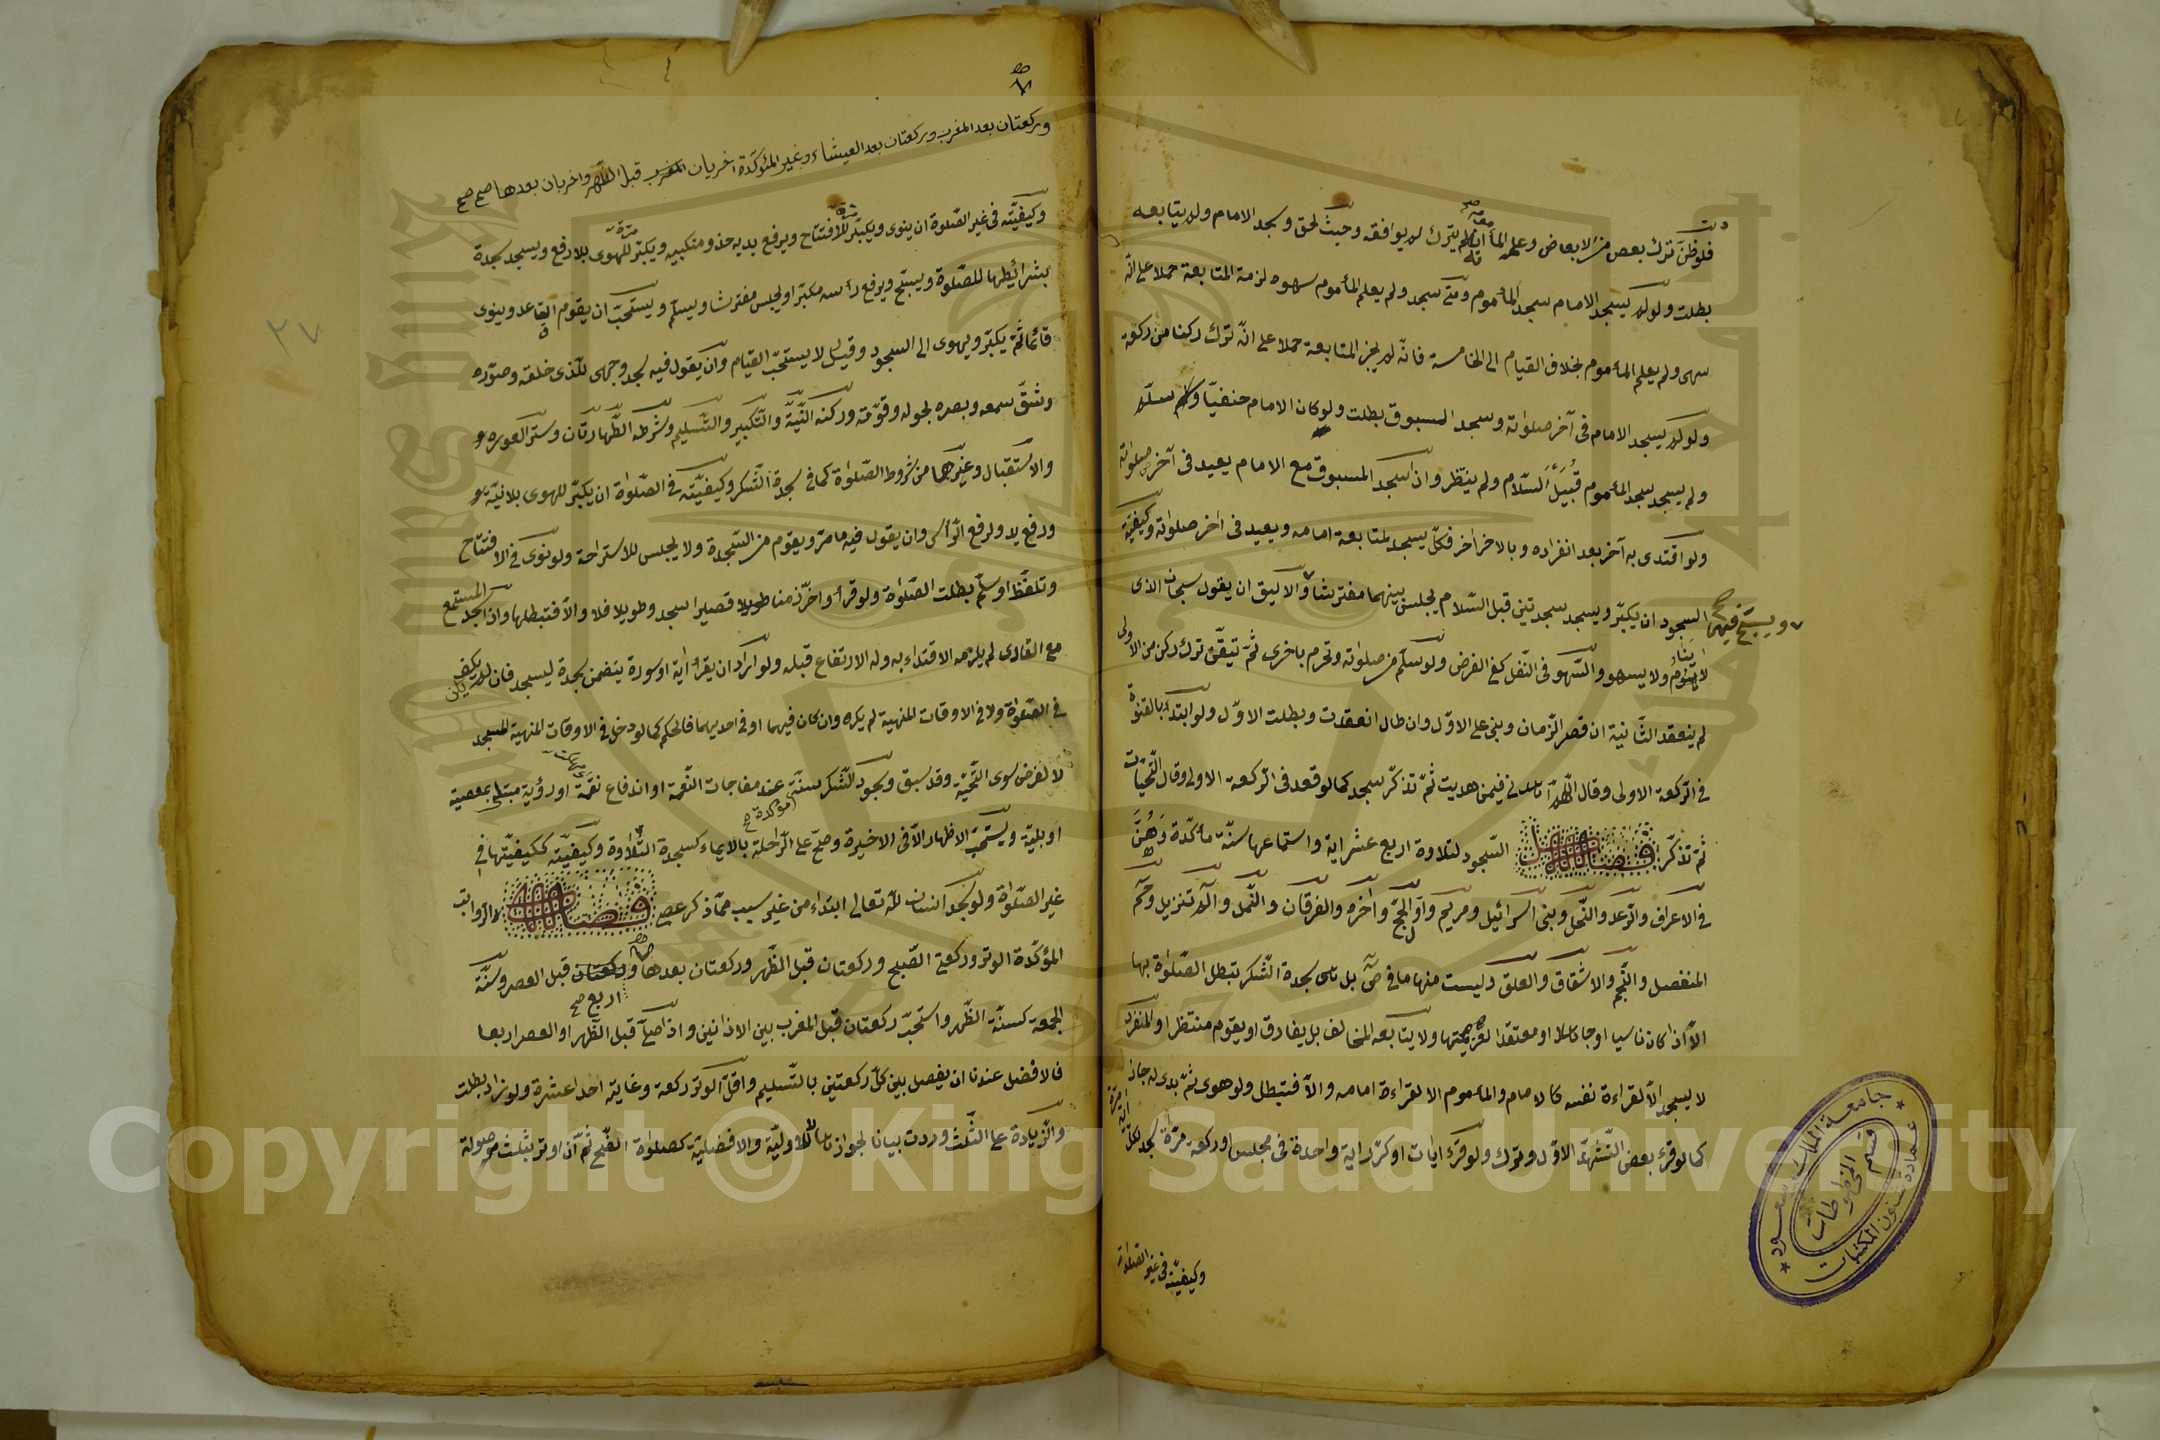 فلو ظن ترك بعض من الابعاض وعلم المأموم انه لم يترك لا يوافقه وحيث لحق وسجد الامام ولا يتابعه
بطلت ولو لم يسجد الامام سجد المأموم ومتى سجد ولم يعلم المأموم سهوه لزمة المتابعة حملا على انّه
سهى ولم يعلم المأموم بخلاف القيام الى الخامسة فانّه لم يجز المتابعة حملا على انّه ترك ركنا من ركعة
ولو لم يسجد الامام فى آخر صلوٰته وسجد المسبوق بطلت ولو كان الامام حنفيّا وسلّم
ولم يسجد سجد المأموم قُبَيلَ السّلام ولم ينتظر وان سجد المسبوق مع الامام يعيد فى آخر صلوٰته
ولو اقتدى به آخر بعد انفراده وبالاخر اخر فكلّ يسجد لمتابعة امامه ويعيد فى اخر صلوٰته وكيفيّة
السجود ان يكبّر ويسجد سجدتين قبل السّلام يجلس بينهما مفترشا والاليق ان يقول سبحان الذى
ويسبّح فيهما صح
لا ينام ولا يسهو والسّهو فى النّفل كفى الفرض ولو سلّم من صلوٰته وتحرم باخرى ثمّ تيقّن ترك ركن من الاولى
لم ينعقد الثّانية ان قصر الزّمان وبنى على الاوّل وان طال انعقدت وبطلت الاوّل ولو ابتدأ بالقنوة
فى الرّكعة الاولى وقال اللّهمّ اهدنى فيمن هديت ثمّ تذكّر سجد كما لو قعد فى الرّكعة الاولى وقال التّحيّات
ثمّ تذكّر فصل السّجود لتلاوة اربع عشر اية واستماعها سنّة مأكّدة وَهُنَّ
فى الاعراف والرّعد والنّحل وبنى اسرائيل ومريم واوّل الحجّ واخره والفرقان والنّمل والٓمٓ تنزيل وحٓمٓ
المنفصل والنّجم والانشقاق والعلق وليست منها ما فى صٓ بل هى سجدة الشّكر تبطل الصّلوٰة بها
الّا اذا كان ناسيا او جاهلا او معتقدا لعزيمتها ولا يتابعه المخالف بل يفارق او يقوم منتظرا والمنفرد
لا يسجد الّا لقراءة نفسه كالامام والمأموم الا لقراءة امامه والّا فتبطل ولو هوى ثمّ بدى له جاز
كما لو قرء بعض التّشهّد الاوّل وترك ولو قرء ايات او كرّر اية واحدة فى مجلس او ركعة مرّة سجد لكلّ
اية مرّة
وكيفيّته فى غير الصّلوة
وركعتان بعد المغرب وركعتان بعد العيشاء وغير المئوكّدة اخريان قبل الظّهر واخريان بعدها صح صح
وكيفيّته فى غير الصّلوة ان ينوى ويكبّر للافتتاح ويرفع يديه حذو منكبيه ويكبّر للهوى بلا رفع ويسجد سجدة
بشرائطها للصّلوة ويسبّح ويرفع رأسه مكبّرا ويجلس مفترشا ويسلّم ويستحبّ ان يقوم القاعد وينوى
قائما ثمّ يكبّر ويهوى الى السجود وقيل لا يستحبّ القيام وان يقول فيه سجد وجهى للّذى خلقه وصوّره
وشقّ سمعه وبصره بحوله وقوّته وركنه النّيّة والتّكبير والتّسليم وشرطه الطّهارتان وستر العورة
والاستقبال وغيرها من شروط الصّلوٰة كما فى سجدة الشّكر وكيفيّته فى الصّلوٰة ان يكبّر للهوى بلا نيّة
ورفع يد ولرفع الرّأس وان يقول فيه ما مرّ ويقوم من السّجدة ولا يجلس للاستراحة ولو نوى فى الافتتاح
وتلفّظ او سلّم بطلت الصّلوٰة ولو قرأ واخرّ زمنا طويلا قصيرا سجد وطويلا فلا والّا فتبطلها واذا سجد المستمع
مع القارى لم يلزمه الاقتداء به وله الارتفاع قبله ولو اراد ان يقرأ اية او سورة يتضمن سجدة ليسجد فان لم يكن
فى الصّلوٰة ولا فى الاوقات المنهية لم يكره وان كان فيهما او فى احديهما فالحكم كما لو دخل فى الاوقات المنهية المسجد
لا لغرض سوى التّحيّة وقد سبق وسجود الشّكر سنّة عند مفاجات النّعمة او اندفاع نقمة او رؤية مبتلى بمعصية
مؤكدة صح
او بليّة ويستحبّ الاظهار الّا فى الاخيرة وصحّ على الرّاحلة بالايماء كسجدة التّلاوة وكيفيّته ككيفيّتها فى
غير الصّلوٰة ولو سجد انسان للّه تعالى ابتداء من غير سبب ممّا ذكر عصى فصل الرّواتب
المؤكّدة الوتر وركعتى الصّبح وركعتان قبل الظّهر وركعتان بعدها و قبل العصر وسنّة
اربع صح
الجمعة كسنّة الظّهر واستحبّ ركعتان قبل المغرب بين الاذانين واذا صلّى قبل الظّهر او العصر اربعا
فالافضل عندنا ان يفصل بين كلّ ركعتين بالتّسليم واقلّ الوتر ركعة وغايته احد اعشرة ولو زاد بطلت
والزّيادة على الثّلث وردت بيانا لجوازها للاوليّة والافضليّة كصلوٰة الضّحى ثمّ ان اوتر بثلث موصولة
٢٧
جامعة الملك سعود
عمادة شئون المكتبات
قسم المخطوطات
Copyright © King Saud University